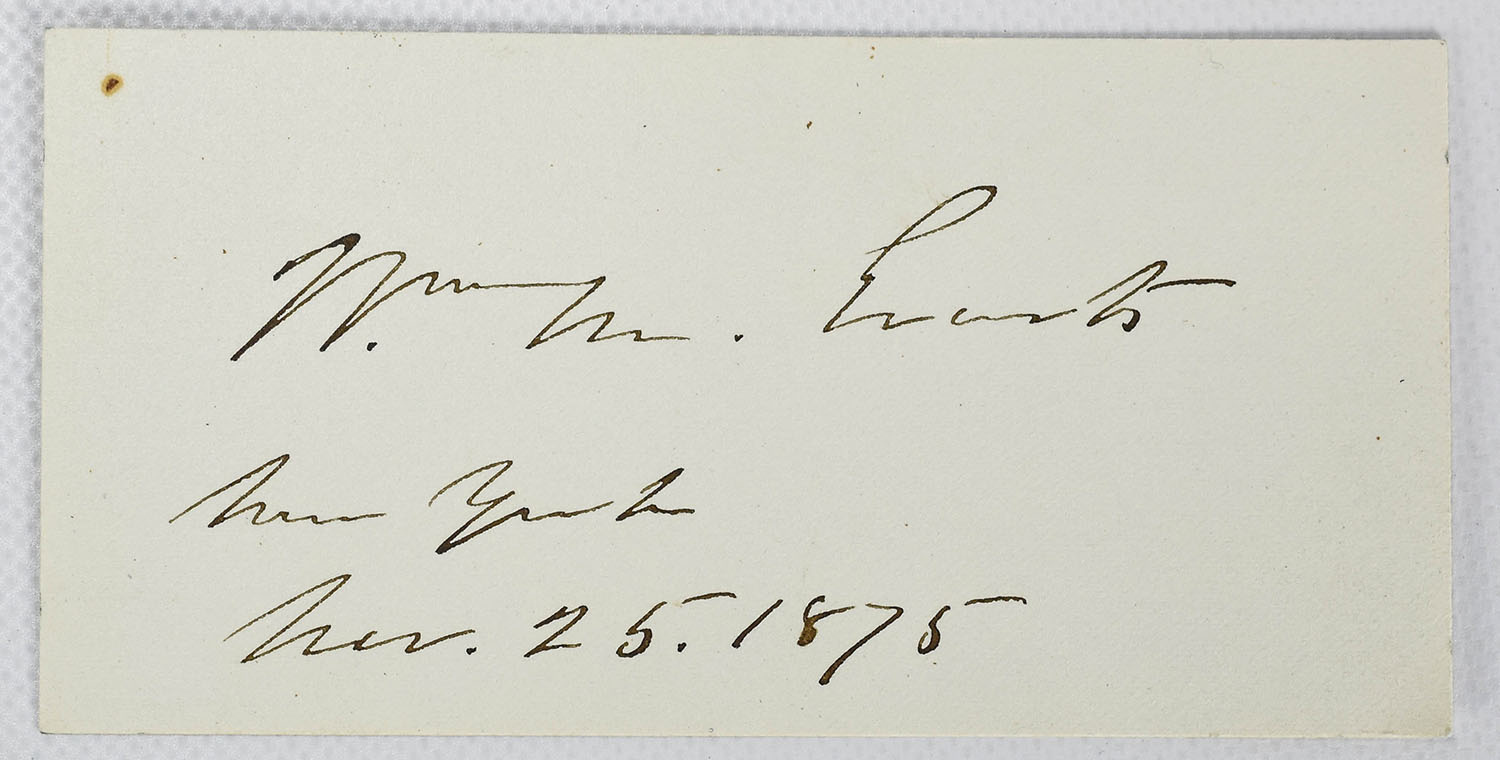 Wm. M. Evarts
New York
Nov. 25. 1875